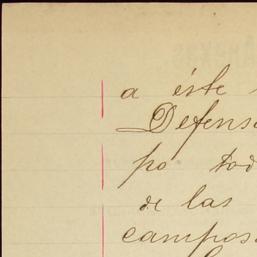 a éste
Defens
po tod
de las
campos